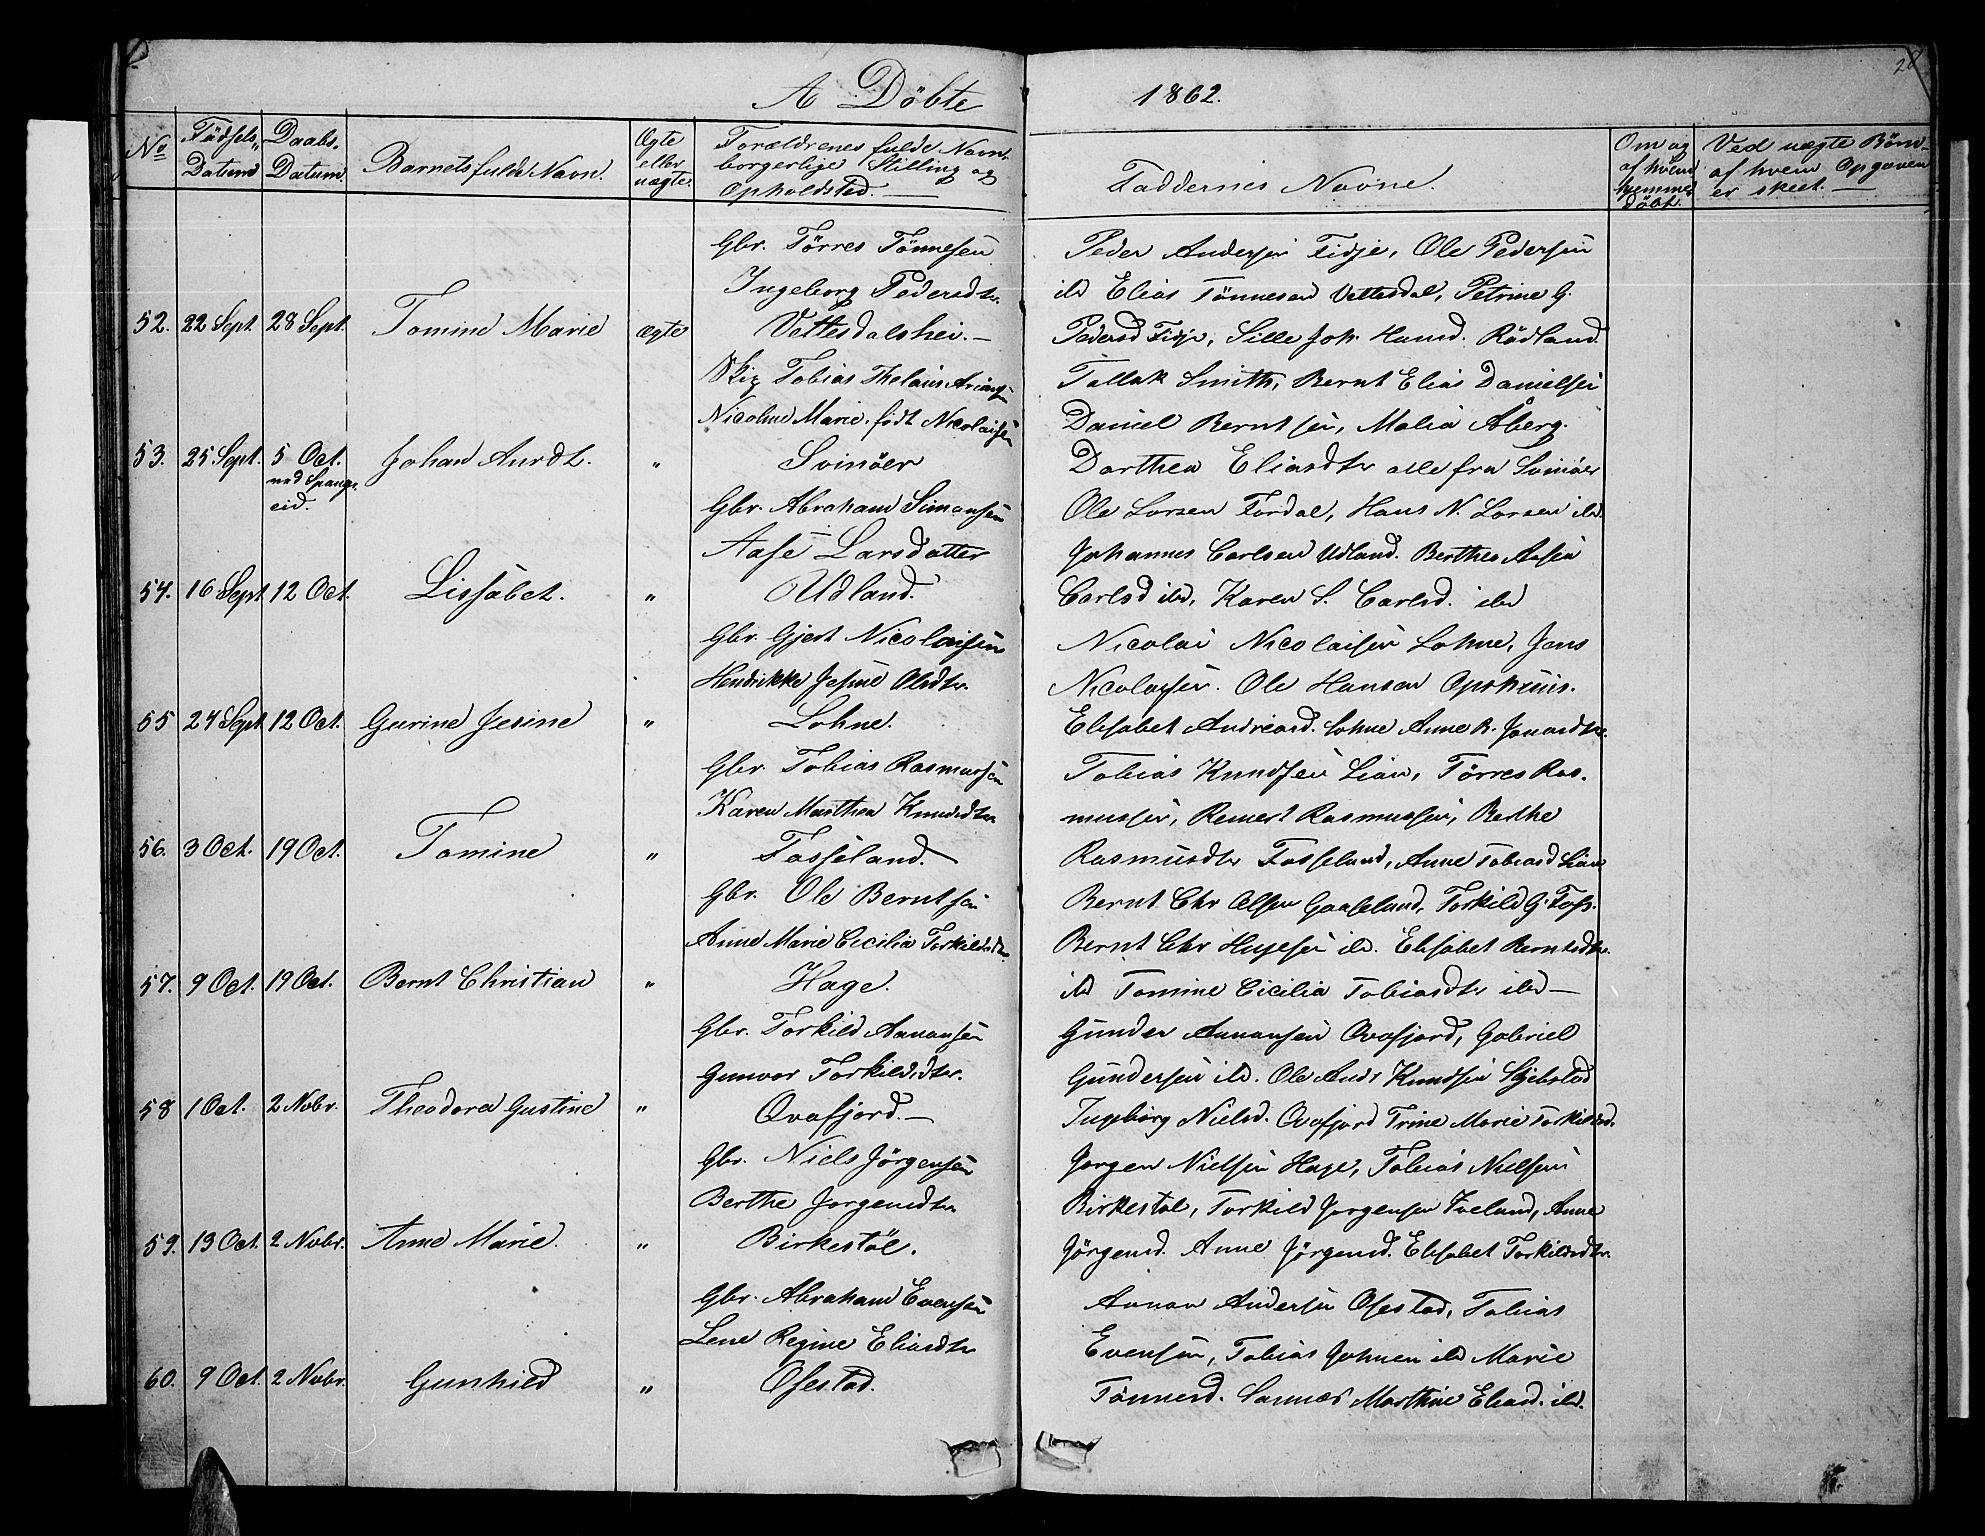 A Döbte
1862.
28
No
Födsels Datum
Daabs Datum.
Barnets fulde Navn.
Ægte eller uægte.
Forældrenes fulde Navn borgerlige Stilling og Opholdsted.
Faddernes Navne.
Om og af hvem hjemme döbt.
Ved uægte Börn af hvem Opgaven er skeet.
Gbr. Tørres Tönnesen
Ingeborg Pedersdtr.
52. 22 Sept. 28 Sept. Tomine Marie ægte Vettesdalshei.
Peder Andersen Fidje, Ole Pedersen
ibd Elias Tönnesen Vettesdal, Petrine G.
Pedersd Fidje, Sille Joh. Hansd. Rödland.
Tobias Thelaus
Nicoline Marie, födt Nicolaisen
53. 25 Sept. 5 Oct. ved Spangeid. Johan Arndt. " Svinöer
Tallak Smith, Bernt Elias Danielsen
Daniel Berntsen, Malia Åberg.
Dorthea Eliasdtr alle fra Svinöer
Gbr. Abraham Simonsen
Aase Larsdatter
54. 16 Sept 12 Oct. Lissabet. " Udland.
Ole Larsen Fordal, Hans N. Larsen ibd.
Johannes Carlsen Udland. Berthea Aasea
Carlsd ibd, Karen S. Carlsd. ibd
Gbr. Gjert Nicolaisen
Hendrikke Jesine Olsdtr.
55 24 Sept 12 Oct. Gurine Jesine " Lohne.
Nicolai Nicolaisen Lohne, Jens
Nicolaisen. Ole Hansen Opshuus.
Elisabet Andreasd. Lohne Anne B. Jonasdtr.
Gbr. Tobias Rasmussen
Karen Marthea Knudsdtr
56. 3 Oct. 19 Oct. Tomine " Fosseland.
Tobias Knudsen Lian, Tørres Ras-
mussen, Reinert Rasmussen, Berthe
Rasmusdtr Fosseland, Anne Tobiasd Lian
Gbr. Ole Berntsen
Anne Marie Cicilia Torkildsdtr
57. 9 Oct. 19 Oct. Bernt Christian " Hage.
Bernt Chr Olsen Gaaseland, Torkild G. Foss.
Bernt Chr ibd. Elisabet Berntsdtr.
ibd Tomine Cicilia Tobiasdtr ibd
Gbr. Torkild Aanansen
Gunvor Torkildsdtr.
58 1 Oct. 2 Nobr. Theodora Gustine " Ovafjord.
Gunder Aanansen Ovafjord, Gabriel
Gundersen ibd. Ole Andr Knudsen
Ingeborg Nielsd. Ovafjord Trine Marie Torkildsd.
Gbr. Niels Jörgensen
Berthe Jorgensdtr
59. 13 Oct. 2 Nobr. Anne Marie. " Birkestöl.
Jorgen Nielsen Hage, Tobias Nielsen
Birkestöl, Torkild Jorgensen Foeland, Anne
Jörgensd. Anne Jörgensd. Elisabet Torkildsdtr.
Gbr. Abraham Evensen
Lene Regine Eliasdtr
60. 9 Oct. 2 Nobr. Gunhild " Ofestad.
Aanon Andersen Ofestad, Tobias
Evensen, Tobias Johnsen ibd Marie
Tönnesd. Sannes Marthine Eliasd. ibd.